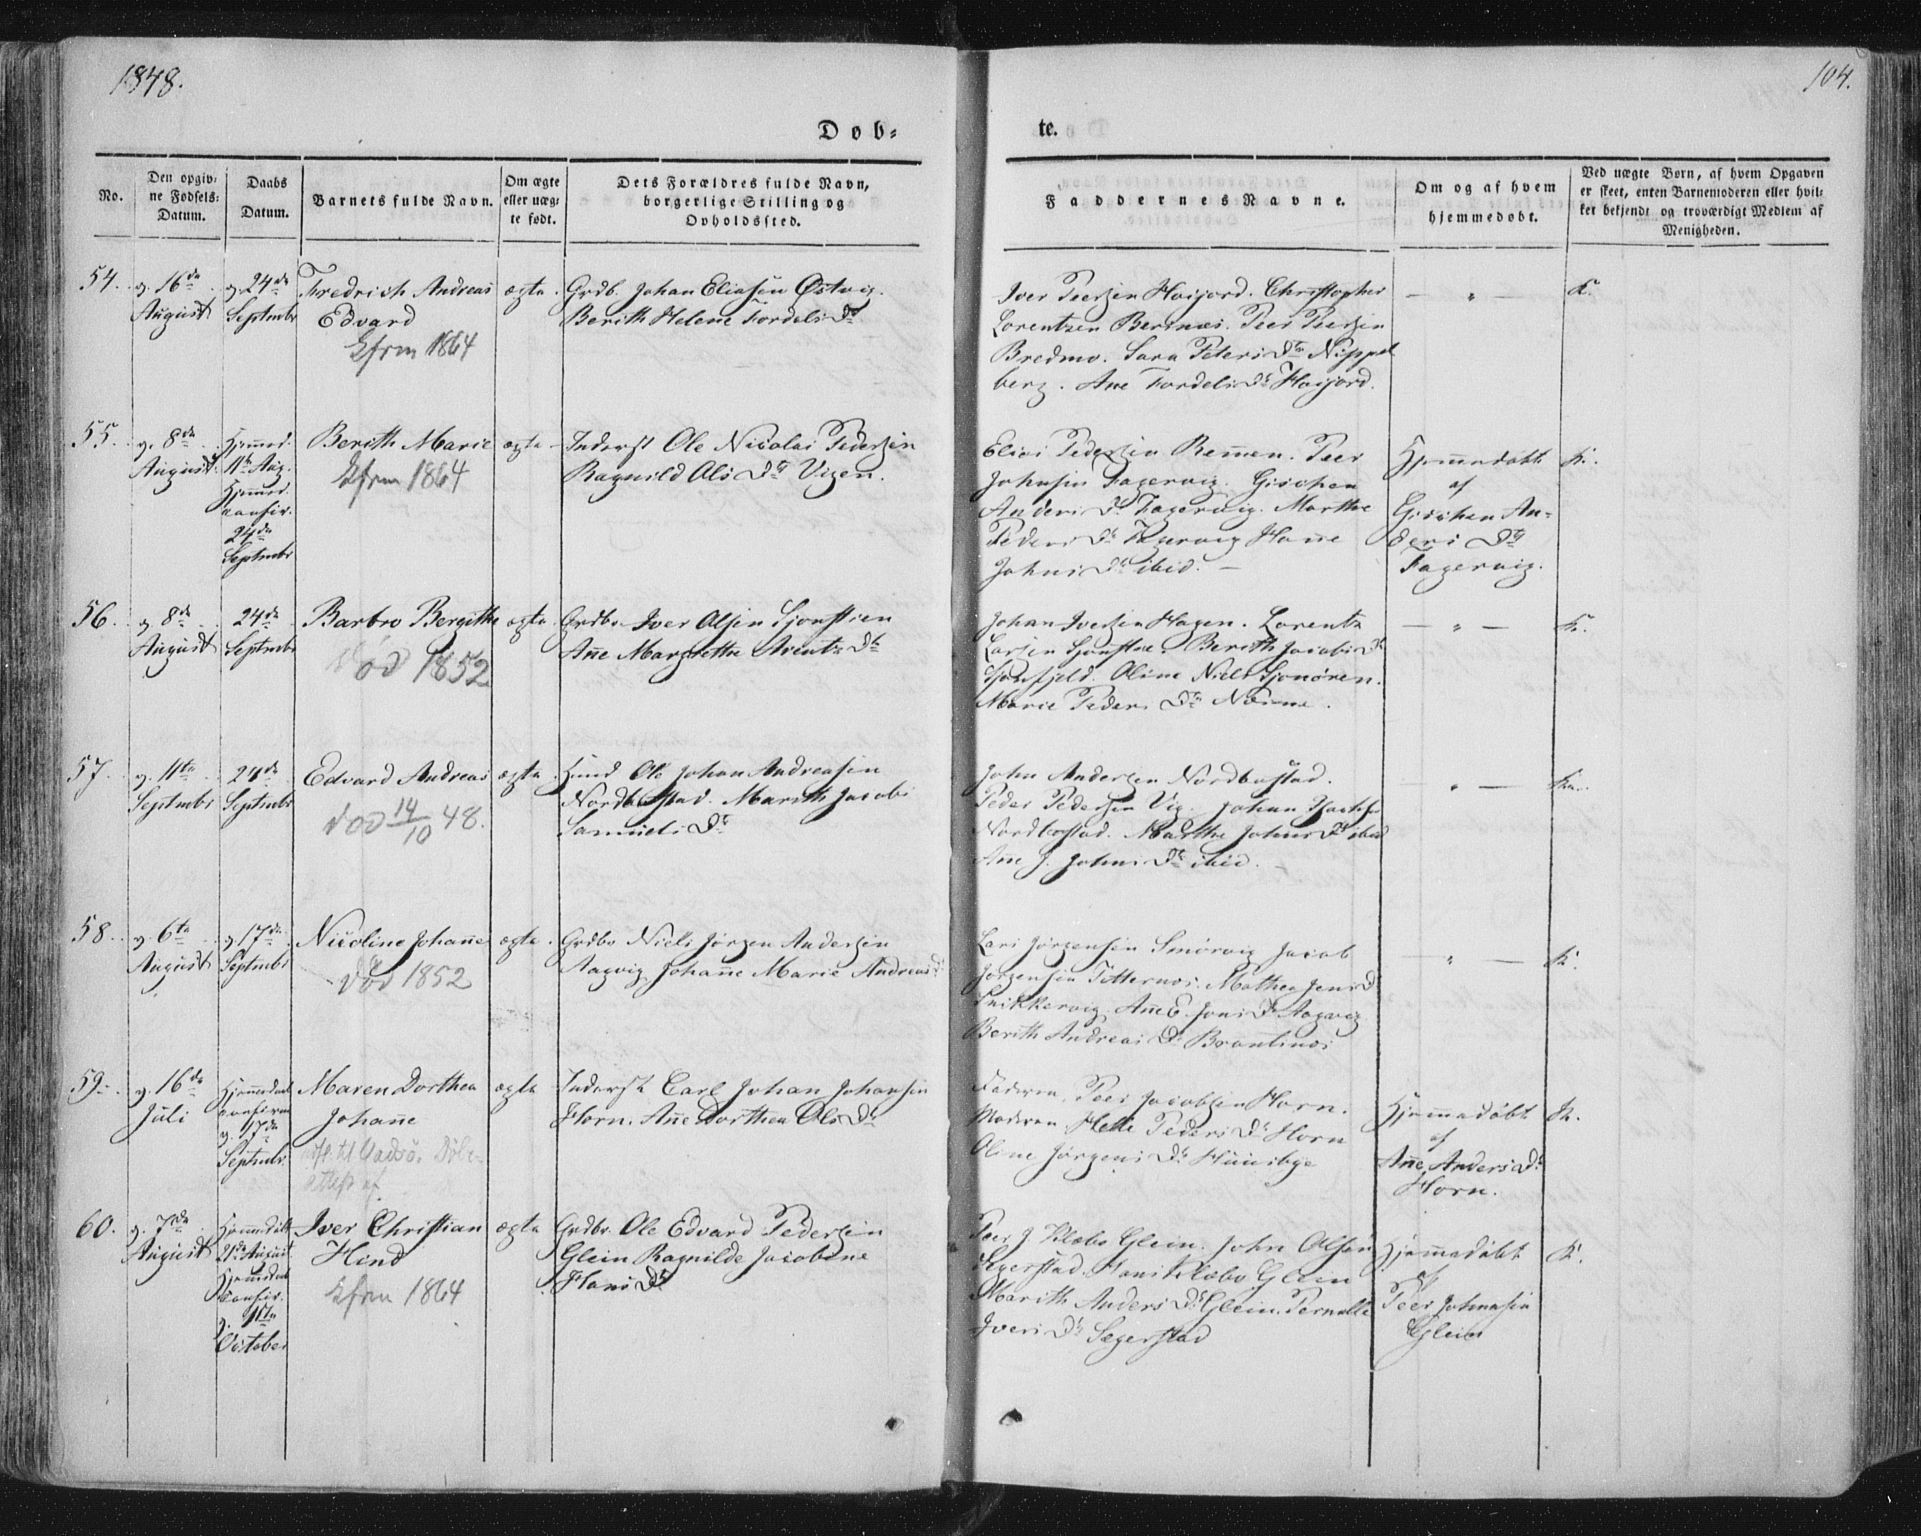 1848.
104.
Døb-
te.
No.
Den opgiv-
ne Fødsels-
Datum.
Daabs
Datum.
Barnets fulde Navn.
Om ægte
eller uæg-
te født.
Dets Forældres fulde Navn,
borgerlige Stilling og
Opholdssted.
Faddernes Navne.
Om og af hvem
hjemmedøbt.
Ved uægte Børn, af hvem Opgaven
er skeet, enten Barnemoderen eller hvil-
ket bekjendt og troværdigt Medlem af
Menigheden.
54.
16de
August
24de
Septmbr
Fredrich Andreas
Edvard
Kfrm 1864
ægte
Grdb. Johan Eliasen Østvig.
Berith Helene Tordels Dr
Iver Peersen Høijord. Christopher
Lorentzen Bernæs. Peer Peersen
Bredmo. Sara Peters Dtr
berg. Ane Tordels Dr Høijord.
— " —
K.
55.
8de
August
Hjemmed.
11te Aug.
Hjemmed.
confir.
24de
Septmbr
Berith Marie
Kfrm 1864
ægte
Inderst Ole Nicolai Pedersen
Ragnild Ols Dr Vigen.
Elias Pedersen Remen. Peer
Johnsen Fagervig. Gischen
Anders Dr Fagervig. Marthe
Peders Dr Fagervig Hanne
Johns Dr ibid. —
Hjemmedøbt
af
Gischen An-
ders Dtr
Fagervig.
K.
56.
8de
August
24de
Septmbr
Barbro Bergithe
død 1852
ægte
Grdbr Iver Olsen
Ane Margrethe Arents Dtr
Johan Iversen Hagen. Lorentz
Larsen Berith Jacobs Dr
Oline Niels
Marie Peders Dtr
— " —
K.
57.
11te
Septmbr
24de
Septmbr
Edvard Andreas
død 14/10 48.
ægte
Ole Johan Andreasen
Nordbostad. Marith Jacobi
Samuels Dr
John Andersen Nordbostad.
Peder Pedersen Vig. Johan
Nordbostad. Marthe Johns Dr ibid
Ane J. Johns Dr ibid. —
— " —
58.
6te
August
17de
Septmbr
Nicoline Johane
død 1852
ægte
Grdbr Niels Jørgen Andersen
Aagvig Johane Marie Andreas Dr
Lars Jørgensen Smørvig Jacob
Jørgensen Titternes. Mathea Jens Dr
Snikkervig. Ane E. Jons Dr Aagvig
Berith Andreas Dr
— " —
K.
59.
16de
Juli
Hjemmedøbt
17de
Septmbr
Maren Dorthea
Johane
Vadsø. Døbe-
attest af
ægte
Inderst Carl Johan Johansen
Horn. Ane Dorthea Ols Dr
Faderen. Peer Jacobsen Horn.
Moderen. Helle Peders Dr Horn
Oline Jørgens Dr Huusbye
Hjemmedøbt
af
Ane Anders Dr
Horn.
K.
60.
7de
August
Hjemmedøbt
21de August
Hjemmedøbt
confir.
1ste
October
Iver Christian
Hind
Kfrm 1864
ægte
Grdbr. Ole Edvard Pedersen
Glein Ragnilde Jacobine
Hans Dr
Peer J Klæbo Glein. John Olsen
Segerstad. Hans Klæbo Glein
Marith Anders Dr Glein. Pernille
Ivers Dr Segerstad
Hjemmedøbt
af
Peer Johnsen
Glein
K.